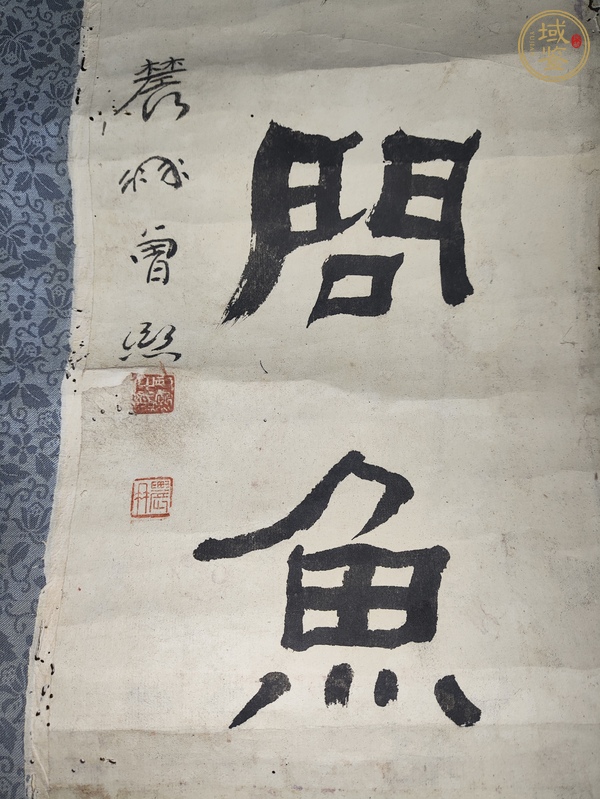 問魚
農髯曾熙
域鉴